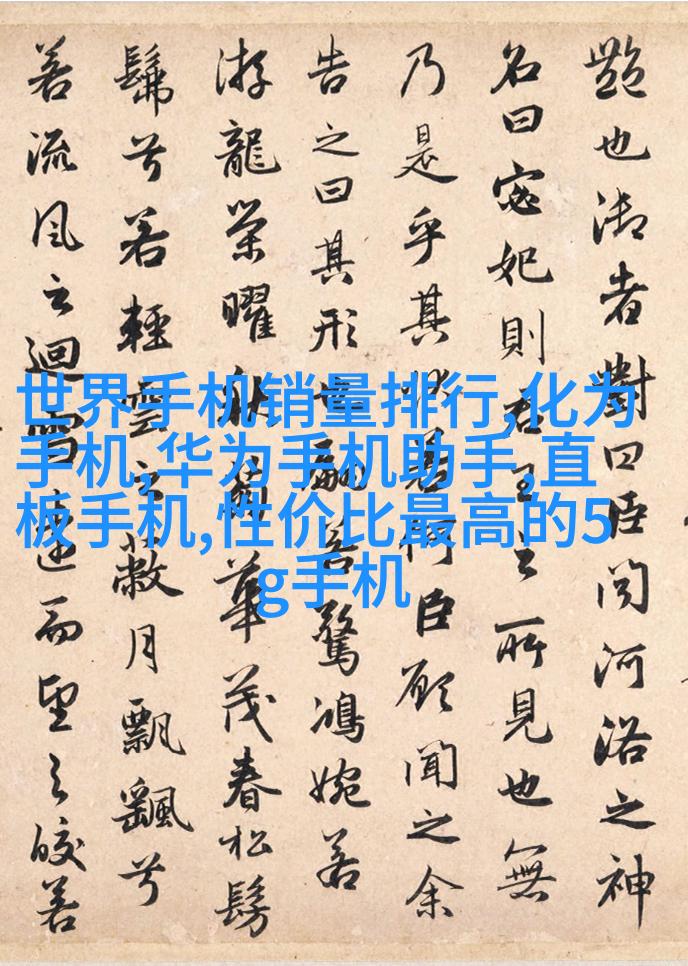 豔也御者對曰臣聞河洛之神
名曰宓妃則君王之所見也無
乃是乎其狀若何臣願聞之余
告之曰其形也翩若驚鴻婉若
游龍榮曜秋菊華茂春松髣
髴兮若輕雲之蔽月飄颻兮
若流風之迴雪遠而望之皎若
世界手机销量排行,化为
手机,华为手机助手,直
板手机,性价比最高的5
g手机